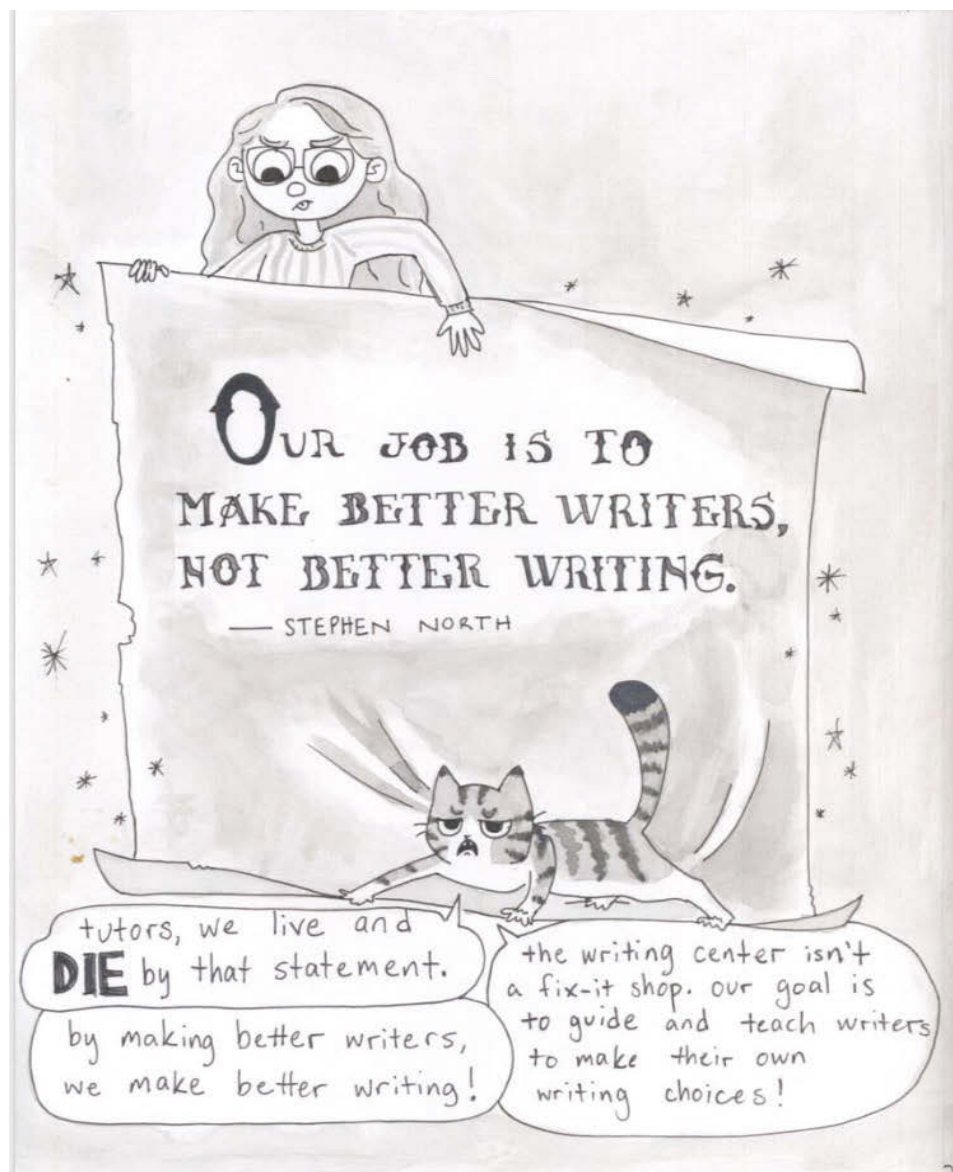 OUR JOB IS TO
MAKE BETTER WRITERS,
NOT BETTER WRITING.
— STEPHEN NORTH
tutors, we live and
DIE by that statement.
by making better writers,
we make better writing!
the writing center isn't
a fix-it shop. our goal is
to guide and teach writers
to make their own
writing choices!